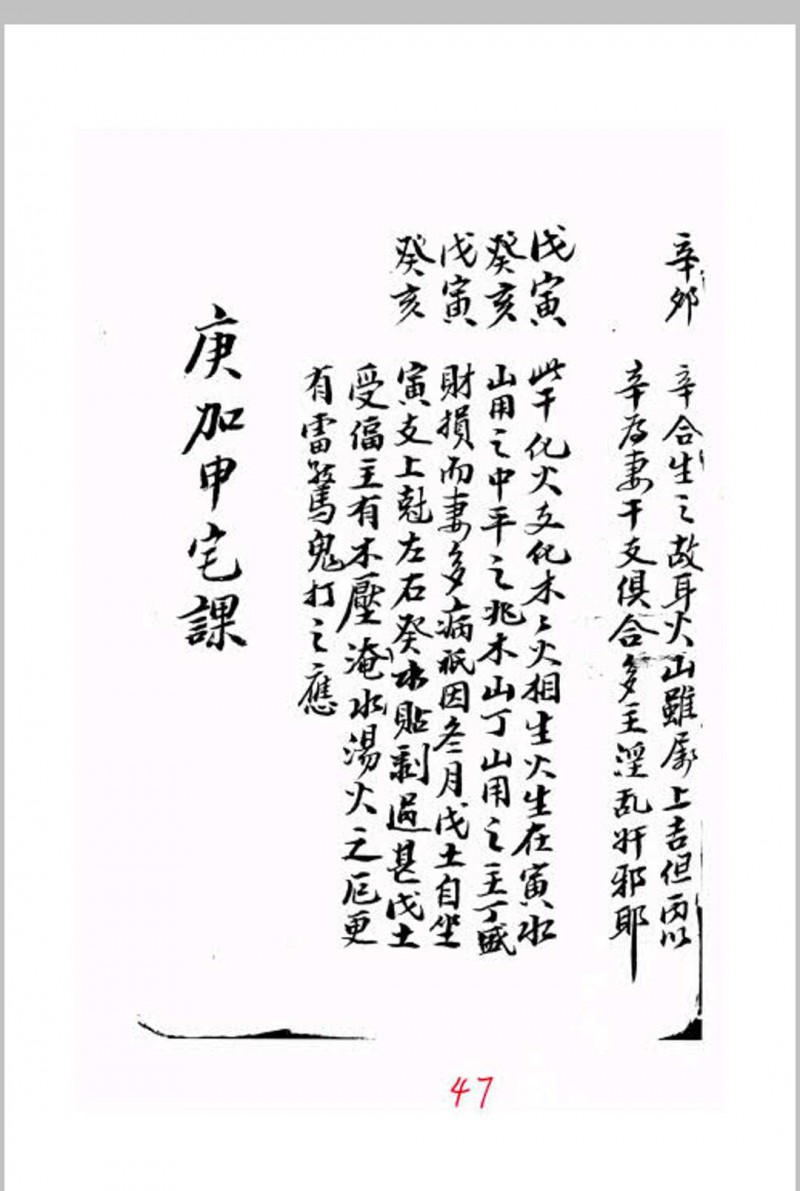 辛卯 辛合生之故耳火山雖屬上吉但丙以
辛為妻干支俱合多主淫乱奸邪耶
戊寅 此干化火支化木木火相生火生在寅水
癸亥 山用之中平之兆木山丁山用之主丁盛
戊寅 財損而妻多病祇因冬月戊土自坐
癸亥 寅支上尅左右癸水貼剥過甚戊土
受偪主有木壓淹水湯火之厄更
有雷驚鬼打之應
庚加申宅課
47